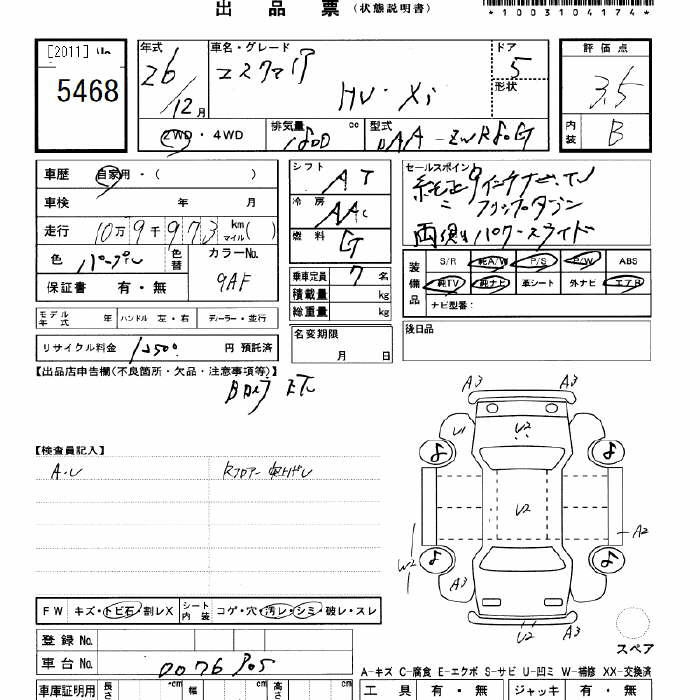 出 品 票 (状態説明書)
*1003104174*
[2011]
5468
年式 26/12月
車名・グレード エスクァイア
HV・Xi
ドア 5
形状
評価点 3.5
内装 B
2WD・4WD 排気量 1800 cc 型式 DAA-ZWR80G
車歴 自家用・( )
車検 年 月
走行 10万9千973 km マイル( )
色 パープル 色替 カラーNo. 9AF
保証書 有・無
シフト AT
冷房 AAC
燃料 G
乗車定員 7 名
積載量 kg
総重量 kg
セールスポイント
純正9インチナビ.TV
フリップダウン
両側パワースライド
装備品 S/R 純A/W P/S P/W ABS
純TV 純ナビ 革シート 外ナビ エアB
ナビ型番:
モデル年式 年 ハンドル 左・右 ディーラー・並行
リサイクル料金 円 預託済
名変期限 月 日
後日品
【出品店申告欄(不良箇所・欠品・注意事項等)】
Bカメラ ETC
【検査員記入】
A.U
A3 A3
U1 U2
U2
A2
W2
A3 A3
U2
FW キズ・トビ石・割レX シート内装 コゲ・穴・汚レ・シミ・破レ・スレ
スペア
登録 No.
車台 No. 0076305
A-キズ C-腐食 E-エクボ S-サビ U-凹ミ W-補修 XX-交換済
車庫証明用 長さ cm 幅 cm 高さ cm
工具 有・無 ジャッキ 有・無